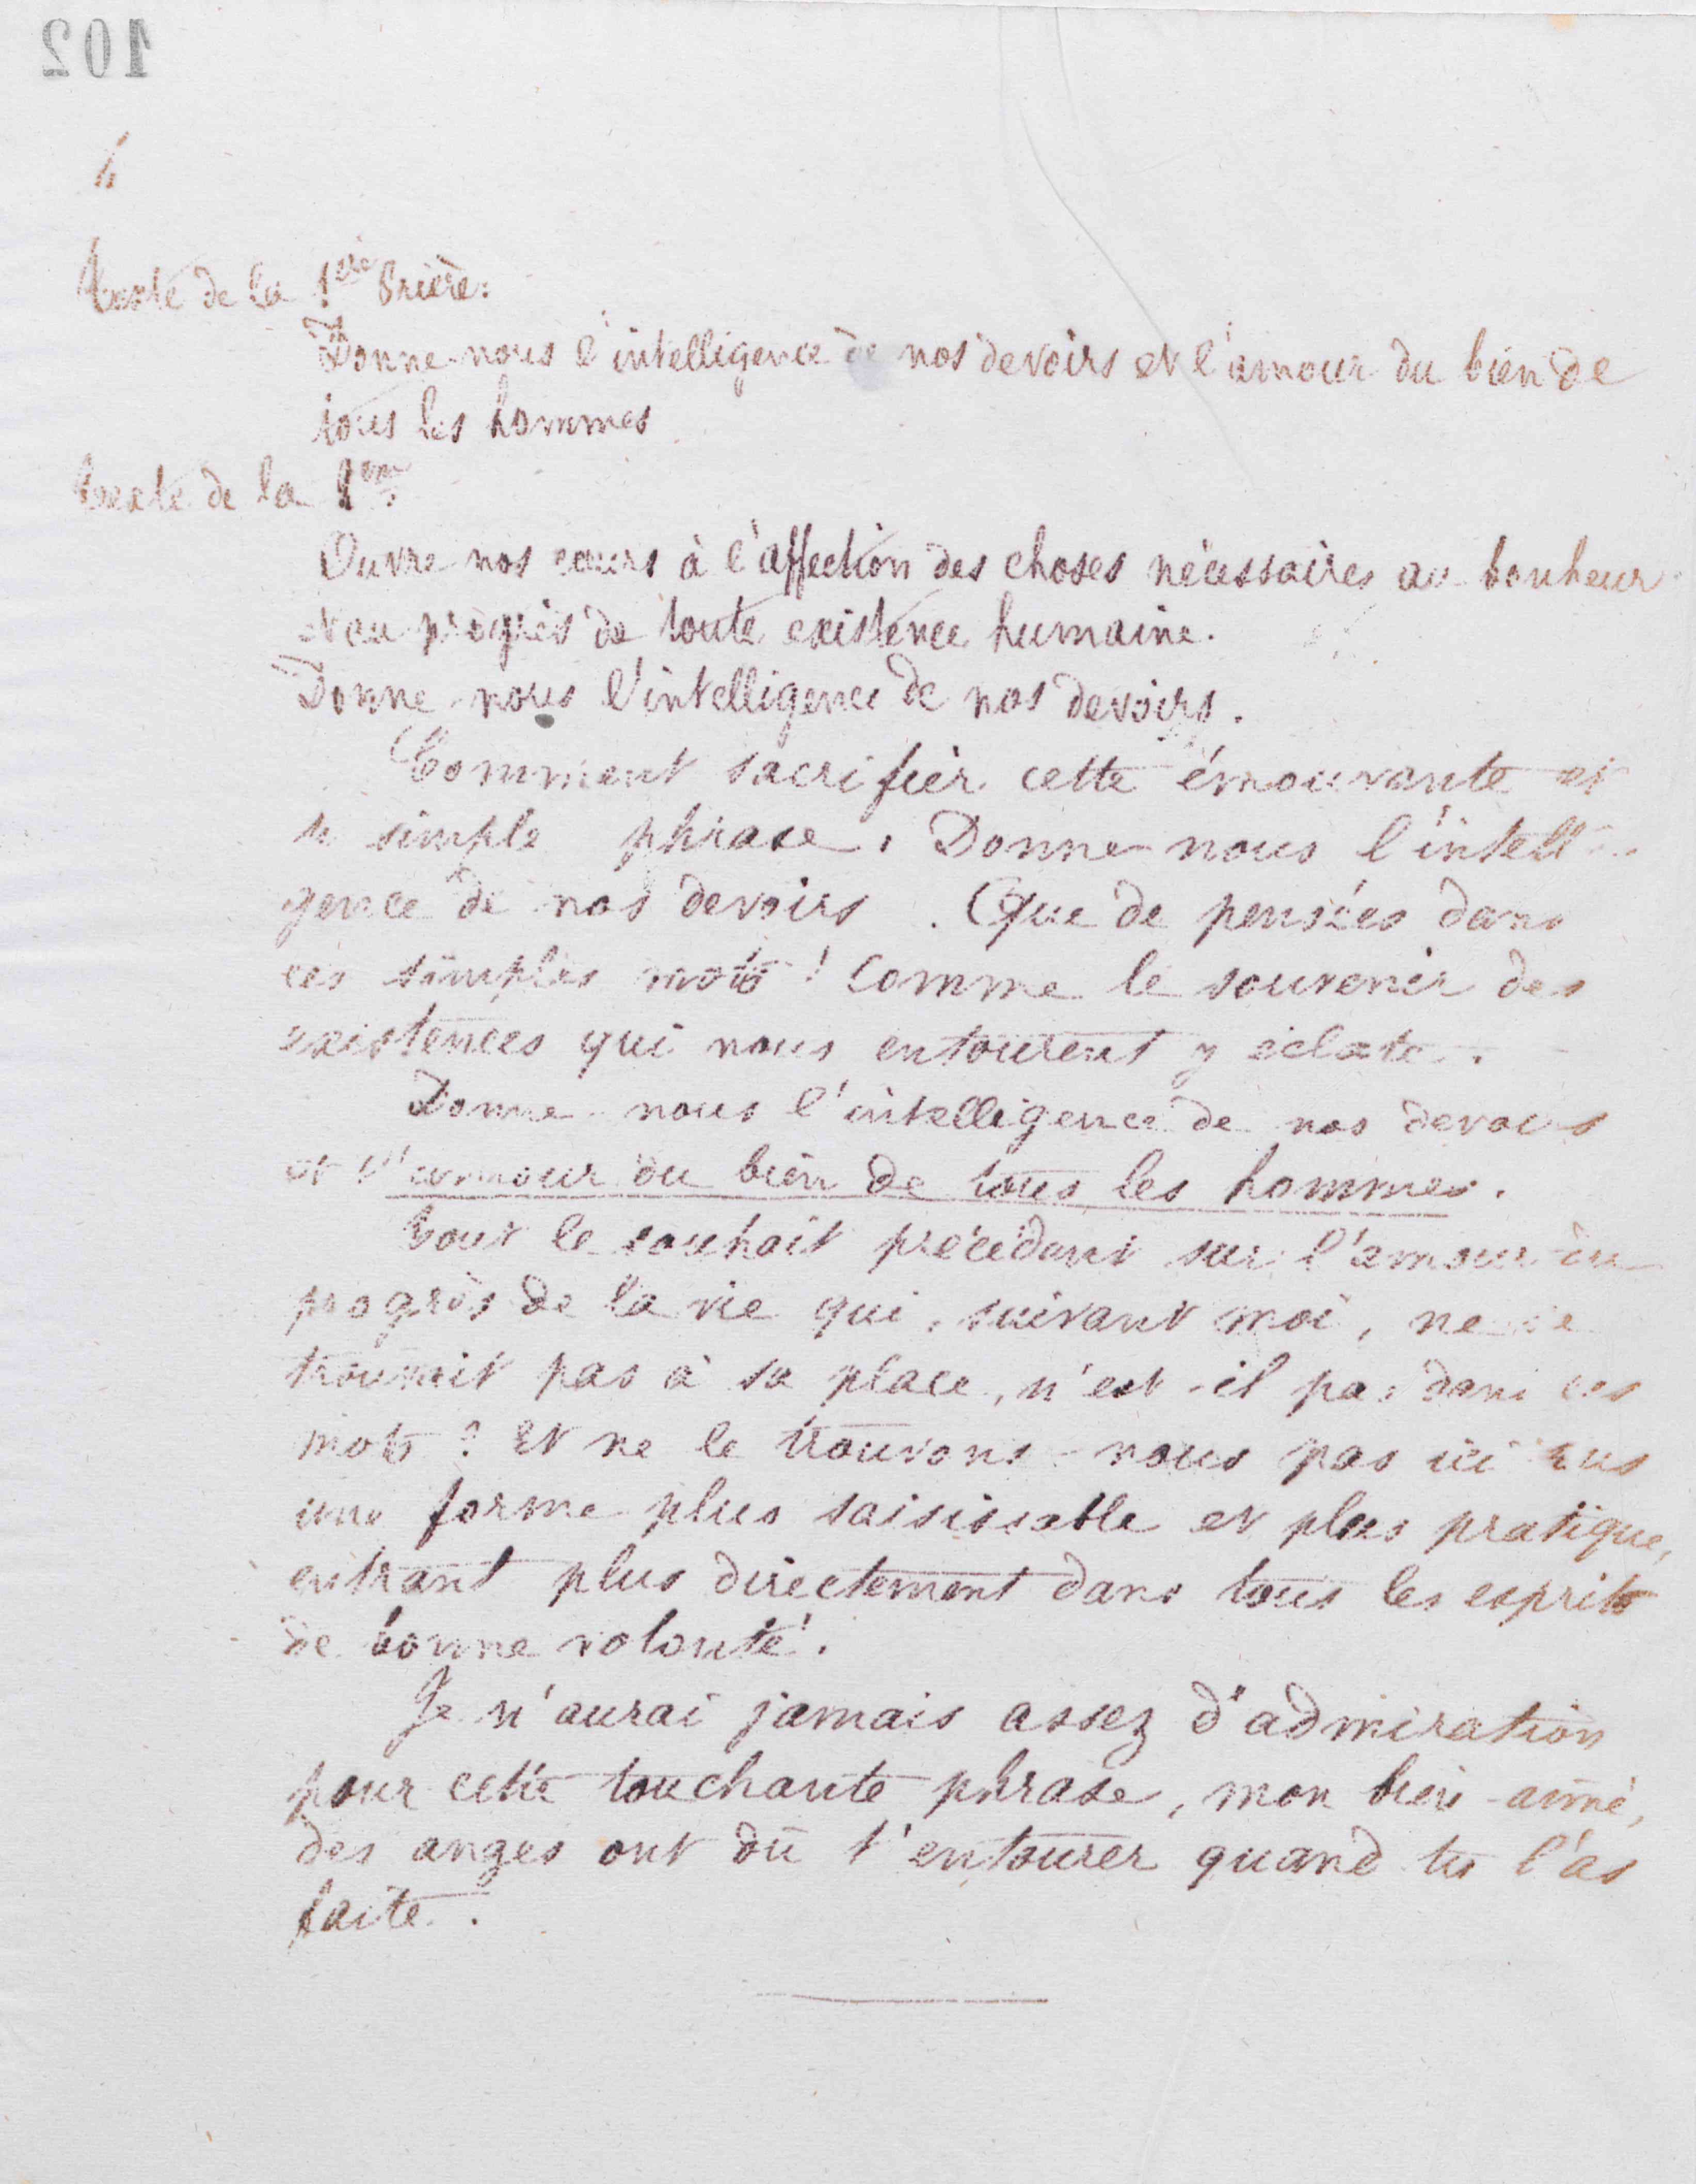 102
4
Texte de la 1ère Prière:
Donne-nous l'intelligence de nos devoirs et l'amour du bien de
tous les hommes
Texte de la
Ouvre nos cœurs à l'affection des choses nécessaires au bonheur
et au progrès de toute existence humaine.
Donne-nous l'intelligence de nos devoirs.
Comment sacrifier cette émouvante et
si simple phrase. Donne-nous l'intelli-
gence de nos devoirs. Que de pensées dans
ces simples mots ! Comme le souvenir des
existences qui nous entourent y éclate.
Donne-nous l'intelligence de nos devoirs
et l'amour du bien de tous les hommes.
Tout le souhait précédant sur l'amour du
progrès de la vie qui, suivant moi, ne se
trouvait pas à sa place, n'est-il pas dans ces
mots ? Et ne le trouvons-nous pas ici sous
une forme plus saisissable et plus pratique,
entrant plus directement dans tous les esprits
de bonne volonté.
Je n'aurai jamais assez d'admiration
pour cette touchante phrase, mon bien-aimé,
des anges ont dû t'entourer quand tu l'as
faite.